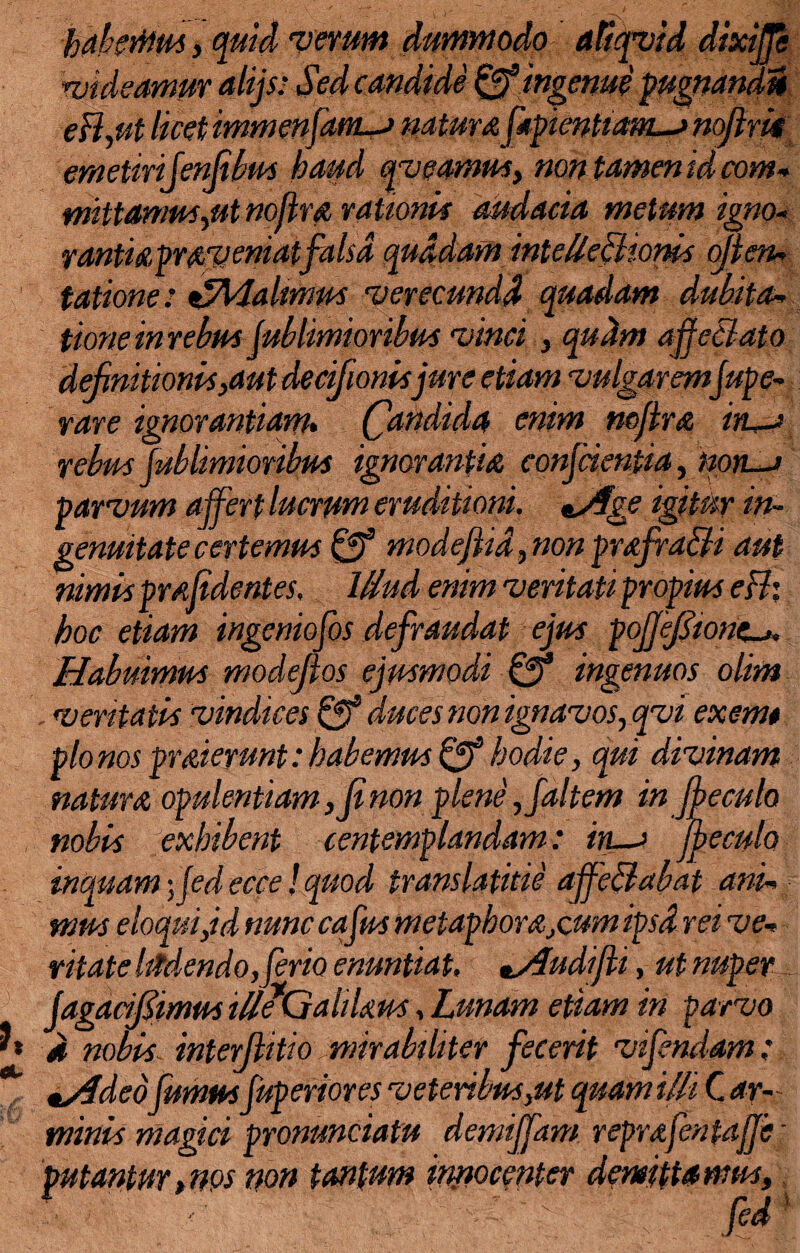 habemus, quid verum dummodo aliqvid dixisse
videamur alijs: Sed candidè & ingenuè pugnandũ
est, ut licet immensam naturæ sapientiam nostris
emetiri sensibus haud qveamus, non tamen id com-
mittamus, ut nostræ rationis audacia metum igno-
rantiæ præveniat falsâ quâdam intellectionis osten-
tatione: Malimus verecundâ quadam dubita-
tione in rebus sublimioribus vinci, quàm affectato
definitionis, aut decisionis jure etiam vulgarem supe-
rare ignorantiam. Candida enim nostræ in
rebus sublimioribus ignorantiæ conscientia, non
parvum affert lucrum eruditioni. Age igitur in-
genuitate certemus & modestiâ, non præfracti aut
nimis præfidentes. Illud enim veritati propius est:
hoc etiam ingeniosos defraudat ejus possessione.
Habuimus modestos ejusmodi & ingenuos olim
veritatis vindices & duces non ignavos, qvi exem-
plo nos præierunt: habemus & hodie, qui divinam
naturæ opulentiam, si non plenè, saltem in speculo
nobis exhibent centemplandam: in speculo
inquam; sed ecce! quod translatitiè affectabat ani-
mus eloqui, id nunc casus metaphoræ, cum ipsâ rei ve-
ritate ludendo, serio enuntiat. Audisti, ut nuper
sagacissimus ille Galilæus, Lunam etiam in parvo
à nobis interstitio mirabiliter fecerit visendam:
Adeò sumus superiores veteribus, ut quam illi Car-
minis magici pronunciatu demissam repræsentasse
putantur, nos non tantum innocenter demittamus,
sed